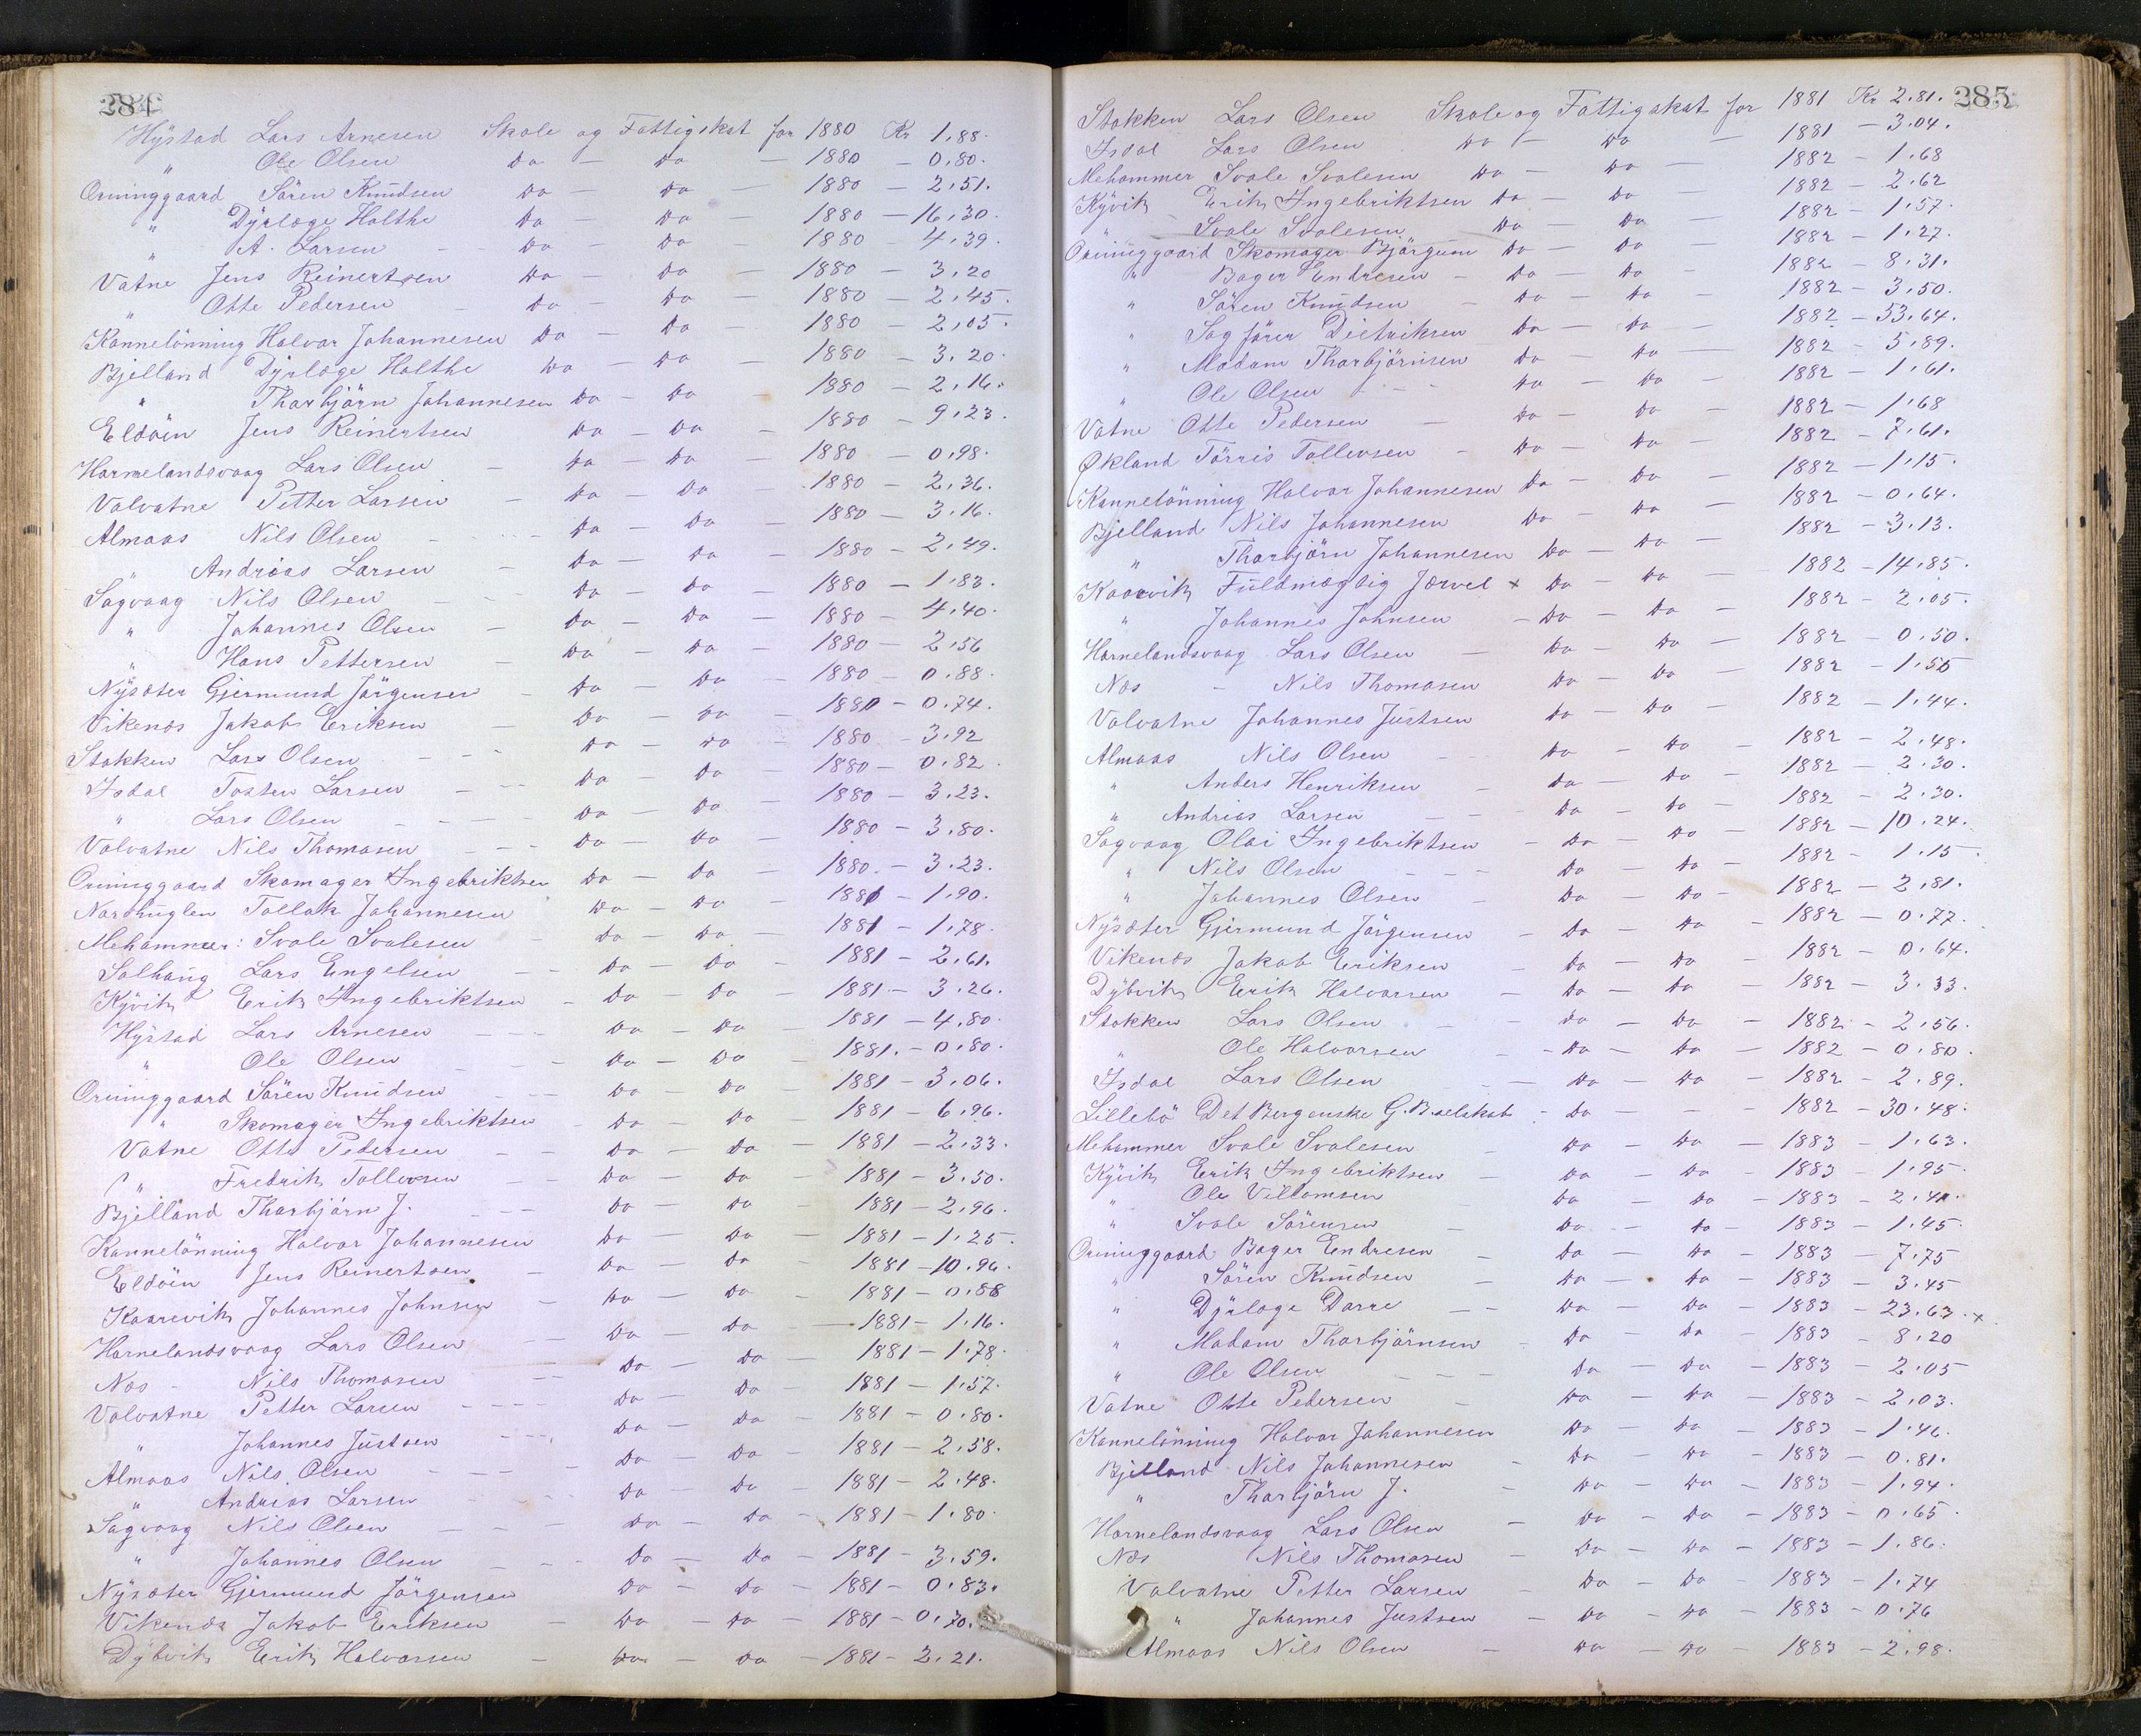 284
Hystad Lars Arnesen Skole og Fattigskat for 1880 Kr 1,88.
" Ole Olsen Do — Do — 1880 — 0,80.
Orninggaard Sören Knudsen Do — Do — 1880 — 2,51.
" Dyrlæge Holthe Do — Do — 1880 — 16,30.
" A. Larsen — Do — Do — 1880 — 4,39.
Vatne Jens Reinertsen Do — Do — 1880 — 3,20
" Otte Pedersen — Do — Do — 1880 — 2,45.
Kannelönning Halvor Johannesen Do — Do — 1880 — 2,05.
Bjelland Dyrlæge Holthe Do — Do — 1880 — 3,20.
" Thorbjörn Johannesen Do — Do — 1880 — 2,16.
Eldöin Jens Reinertsen Do — Do — 1880 — 9,23.
Hornelandsvaag Lars Olsen — Do — Do — 1880 — 0,98.
Valvatne Petter Larsen — Do — Do — 1880 — 2,36.
Almaas Nils Olsen — Do — Do — 1880 — 3,16.
" Andreas Larsen — Do — Do — 1880 — 2,49.
Sagvaag Nils Olsen — Do — Do — 1880 — 1,83.
" Johannes Olsen — Do — Do — 1880 — 4,40.
" Hans Pettersen — Do — Do — 1880 — 2,56
Nysæter Gjermund Jörgensen — Do — Do — 1880 — 0,88.
Vikenæs Jakob Eriksen — Do — Do — 1880 — 0,74.
Stokken Lars Olsen — Do — Do — 1880 — 3,92
Isdal Tosten Larsen — Do — Do — 1880 — 0,82.
" Lars Olsen — Do — Do — 1880 — 3,23.
Valvatne Nils Thomasen — Do — Do — 1880 — 3,80.
Orninggaard Skomager Ingebriktsen Do — Do — 1880 — 3,23.
Nordhuglen Tollak Johannesen Do — Do — 1881 — 1,90.
Mehammer: Svale Svalesen — Do — Do — 1881 — 1,78.
Solhaug Lars Engelsen — Do — Do — 1881 — 2,61.
Kyvik Erik Ingebriktsen — Do — Do — 1881 — 3,26.
Hystad Lars Arnesen — Do — Do 1881 — 4,80.
" Ole Olsen — Do — Do — 1881. — 0,80.
Orninggaard Sören Knudsen — Do — Do — 1881 — 3,06.
" Skomager Ingebriktsen — Do — Do — 1881 — 6,96.
Vatne Otte Pedersen — Do — Do — 1881 — 2,33.
" Fredrik Tollevsen — Do — Do — 1881 — 3,50.
Bjelland Thorbjörn J. — Do — Do — 1881 — 2,96.
Kannelönning Halvor Johannesen Do — Do — 1881 — 1,25.
Eldöin Jens Reinertsen — Do — Do — 1881 — 10,96.
Kaarevik Johannes Johnsen — Do — Do — 1881 — 0,88
Hornelandsvaag Lars Olsen — Do — Do — 1881 — 1,16.
Næs — Nils Thomasen — Do — Do — 1881 — 1,78.
Valvatne Petter Larsen — Do — Do — 1881 — 1,57.
" Johannes Justsen — Do — Do — 1881 — 0,80.
Almaas Nils Olsen — Do — Do — 1881 — 2,58.
" Andreas Larsen — Do — Do — 1881 — 2,48.
Sagvaag Nils Olsen — Do — Do — 1881 — 1,80.
" Johannes Olsen — Do — Do — 1881 — 3,59.
Nysæter Gjermund Jörgensen Do — Do — 1881 — 0,83.
Vikenæs Jakob Eriksen — Do — Do — 1881 — 0,70.
Dybvik Erik Halvorsen — Do — Do — 1881 — 2,21.
285
Stokken Lars Olsen Skole og Fattigskat for 1881 Kr 2,81.
Isdal Lars Olsen Do — Do — 1881 — 3,04.
Mehammer Svale Svalesen Do — Do — 1882 — 1,68
Kyvik Erik Ingebriktsen Do — Do — 1882 — 2,62
" Svale Svalesen Do — Do — 1882 — 1,57.
Orninggaard Skomager Bjorgum Do — Do — 1882 — 1,27.
" Bager Endresen — Do — Do — 1882 — 8,31.
" Sören Knudsen — Do — Do — 1882 — 3,50.
" Sagförer Diedriksen Do — Do — 1882 — 53,64.
" Madam Thorbjörnsen Do — Do — 1882 — 5,89.
" Ole Olsen — Do — Do — 1882 — 1,61.
Vatne Otte Pedersen — Do — Do — 1882 — 1,68
Økland Törris Tollevsen — Do — Do — 1882 — 7,61.
Kannelönning Halvor Johannesen Do — Do — 1882 — 1,15.
Bjelland Nils Johannesen Do — Do — 1882 — 0,64.
" Thorbjörn Johannesen Do — Do — 1882 — 3,13.
Kaarevik Fuldmægtig Jærvel x Do — Do — 1882 — 14,85.
" Johannes Johnsen — Do — Do — 1882 — 2,05.
Hornelandsvaag Lars Olsen — Do — Do — 1882 — 0,50.
Næs — Nils Thomasen Do — Do — 1882 — 1,55
Valvatne Johannes Justsen Do — Do — 1882 — 1,44.
Almaas Nils Olsen — Do — Do — 1882 — 2,48.
" Anders Henriksen — Do — Do — 1882 — 2,30.
" Andreas Larsen — Do — Do — 1882 — 2,30.
Sagvaag Olai Ingebriktsen — Do — Do — 1882 — 10,24.
" Nils Olsen — Do — Do — 1882 — 1,15.
" Johannes Olsen — Do — Do — 1882 — 2,81.
Nysæter Gjermund Jörgensen — Do — Do — 1882 — 0,77.
Vikenæs Jakob Eriksen — Do — Do — 1882 — 0,64.
Dybvik Erik Halvorsen — Do — Do — 1882 — 3,33.
Stokken Lars Olsen — Do — Do — 1882 — 2,56.
" Ole Halvorsen — Do — Do — 1882 — 0,80.
Isdal Lars Olsen — Do — Do — 1882 — 2,89.
Lillebö Det Bergenske G.B. selskab — Do — — 1882 — 30,48.
Mehammer Svale Svalesen — Do — Do — 1883 — 1,63.
Kyvik Erik Ingebriktsen — Do — Do — 1883 — 1,95.
" Ole Villomsen Do — Do — 1883 —
" Svale Sörensen — Do — Do — 1883 — 1,45.
Orninggaard Bager Endresen — Do — Do — 1883 — 7,75
" Sören Knudsen — Do — Do — 1883 — 3,45
" Dyrlæge Darre — Do — Do — 1883 — 23,63. x
" Madam Thorbjörnsen — Do — Do — 1883 — 8,20
" Ole Olsen — Do — Do — 1883 — 2,05
Vatne Otte Pedersen — Do — Do — 1883 — 2,03.
Kannelönning Halvor Johannesen Do — Do — 1883 — 1,46.
Bjelland Nils Johannesen — Do — Do — 1883 — 0,81.
" Thorbjörn J. — Do — Do — 1883 — 1,94.
Hornelandsvaag Lars Olsen — Do — Do — 1883 — 0,65.
Næs Nils Thomasen — Do — Do — 1883 — 1,86.
Valvatne Petter Larsen — Do — Do — 1883 — 1,74
" Johannes Justsen — Do — Do — 1883 — 0,76
Almaas Nils Olsen — Do — Do — 1883 — 2,98.